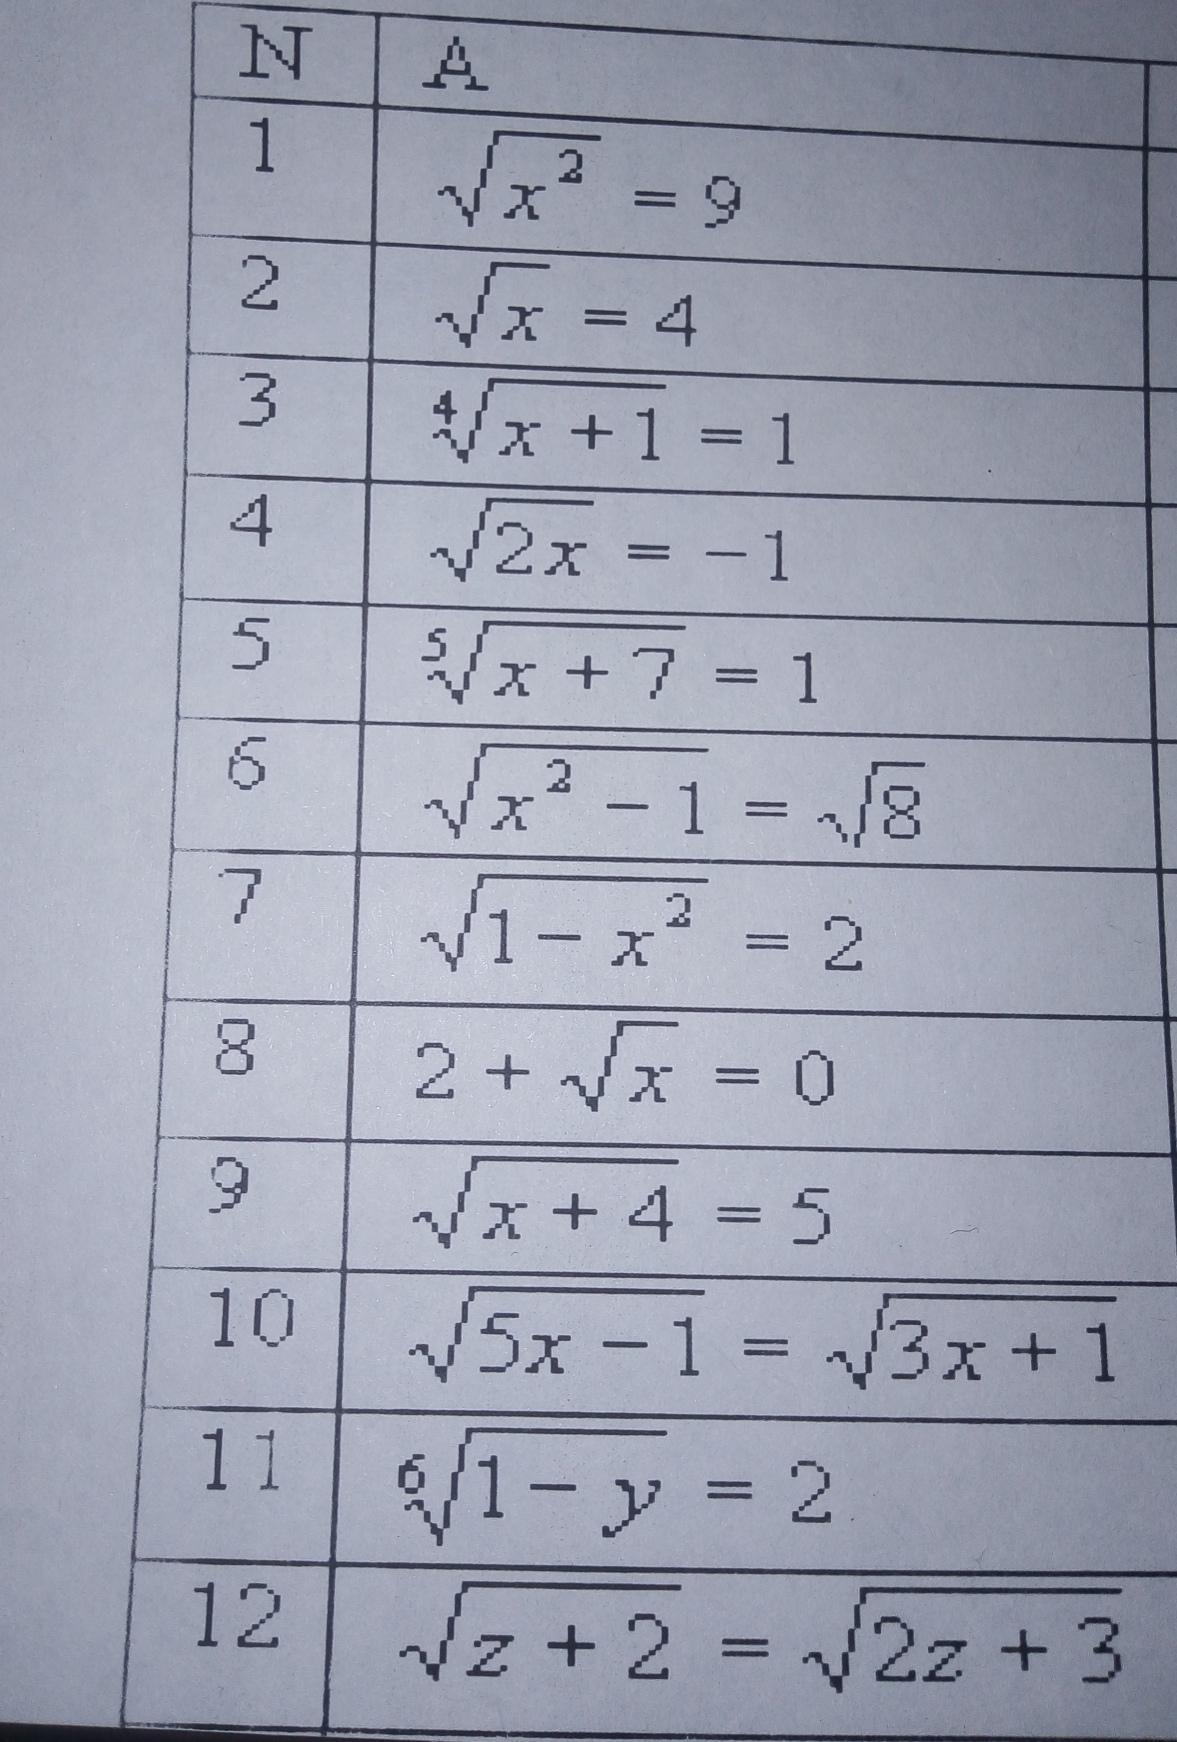 N A
1 √x² = 9
2 √x = 4
3 ⁴√x + 1 = 1
4 √2x = −1
5 ⁵√x + 7 = 1
6 √x² − 1 = √8
7 √1 − x² = 2
8 2 + √x = 0
9 √x + 4 = 5
10 √5x − 1 = √3x + 1
11 ⁶√1 − y = 2
12 √z + 2 = √2z + 3